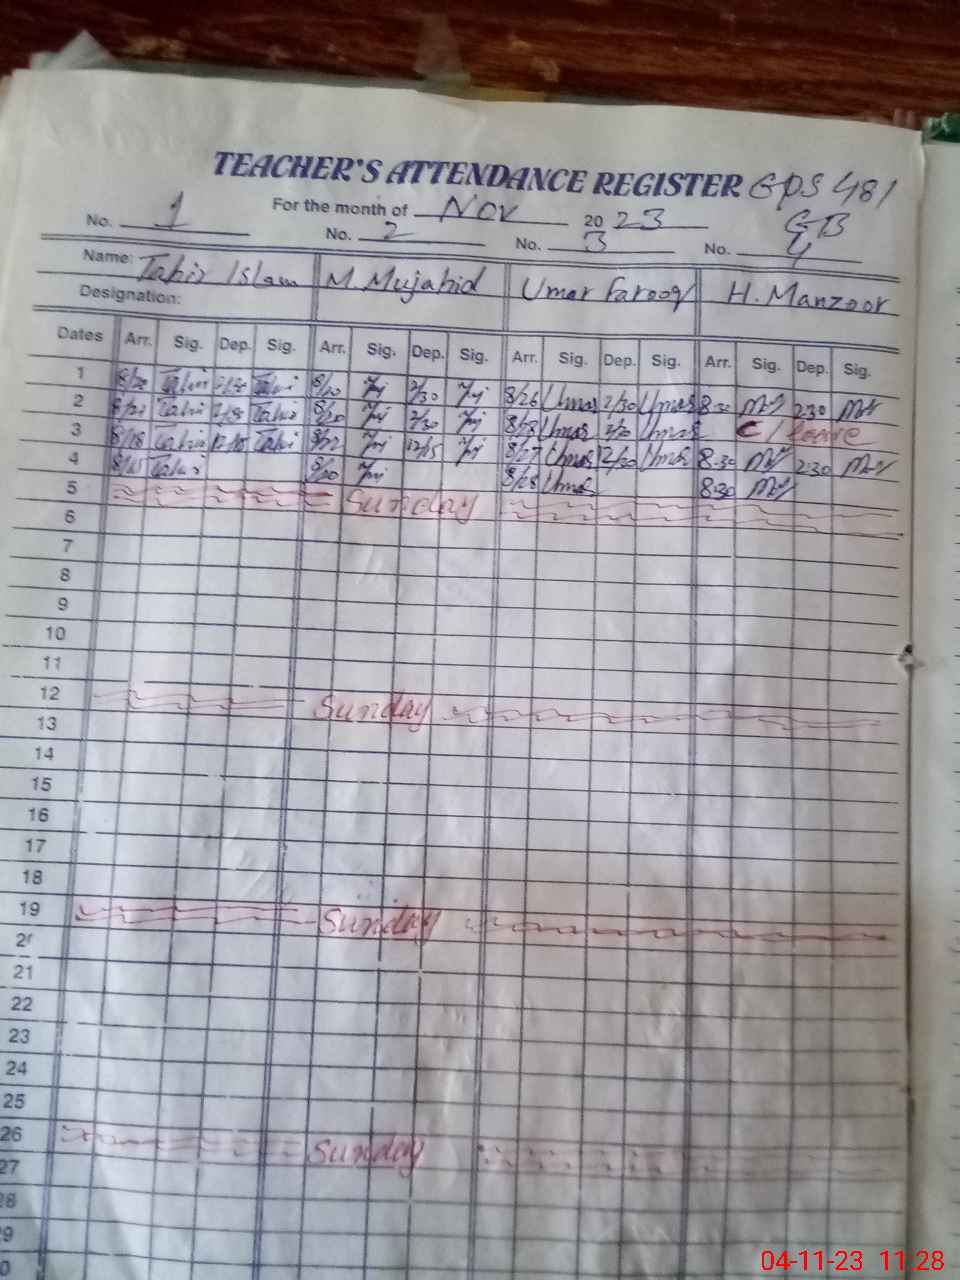 TEACHER'S ATTENDANCE REGISTER GPS 481
GB
No. 1 For the month of Nov 2023
No. 2 No. 3 No. 4
Name: Tahir Islam M. Mujahid Umar Farooq H. Manzoor
Designation:
Dates Arr. Sig. Dep. Sig. Arr. Sig. Dep. Sig. Arr. Sig. Dep. Sig. Arr. Sig. Dep. Sig.
1 8/20 Tahir Tahir 8/20 2/30 8/26 Umar 2/30 Umar 8:30 2:30
2 Tahir Tahir 8/20 2/30 8/28 Umar Umar C/leave
3 8/18 Tahir Tahir 12/15 8/27 Umar 12/30 Umar 8:30 2:30
4 8/15 Tahir 8/20 8/28 Umar 8:30
5 Sunday
6
7
8
9
10
11
12 Sunday
13
14
15
16
17
18
19 Sunday
21
22
23
24
25
26 Sunday
27
28
29
04-11-23 11:28